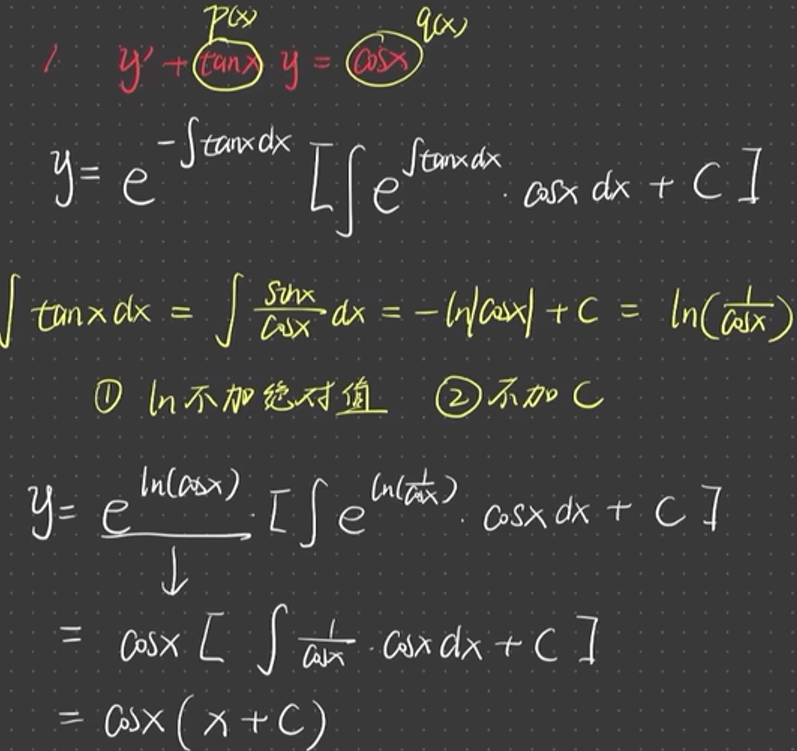 p(x) q(x)
1. y' + tanx y = cosx
y = e^{-∫tanxdx} [∫e^{∫tanxdx} · cosx dx + C]
∫ tanxdx = ∫ \frac{sinx}{cosx} dx = -ln|cosx| + C = ln(\frac{1}{cosx})
① ln不加绝对值 ②不加C
y = e^{ln(cosx)} · [∫e^{ln(\frac{1}{cosx})} · cosxdx + C]
↓
= cosx [∫ \frac{1}{cosx} · cosxdx + C]
= cosx(x+C)